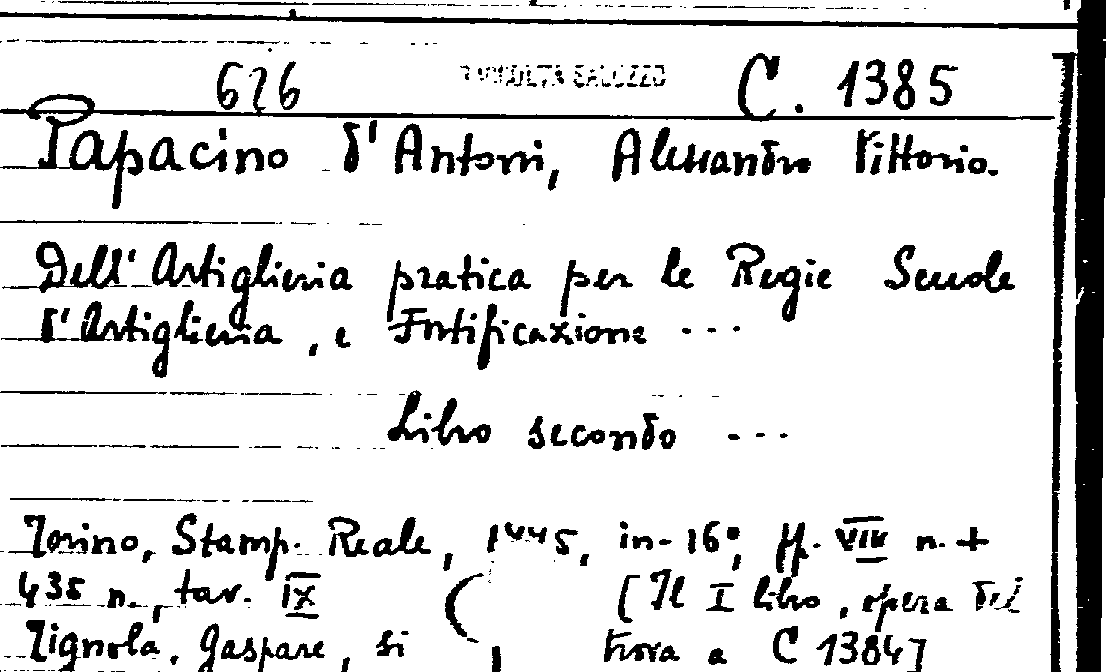 626 RACCOLTA SALUZZO C. 1385
Papacino d'Antoni, Alessandro Vittorio.
Dell'Artiglieria pratica per le Regie Scuole
d'Artiglieria, e Fortificazione ...
Libro secondo ...
Torino, Stamp. Reale, in-16°, pp. n. +
435 n., tav. IX ( [Il I libro, opera del
Tignola, Gaspare, si trova a C 1384]